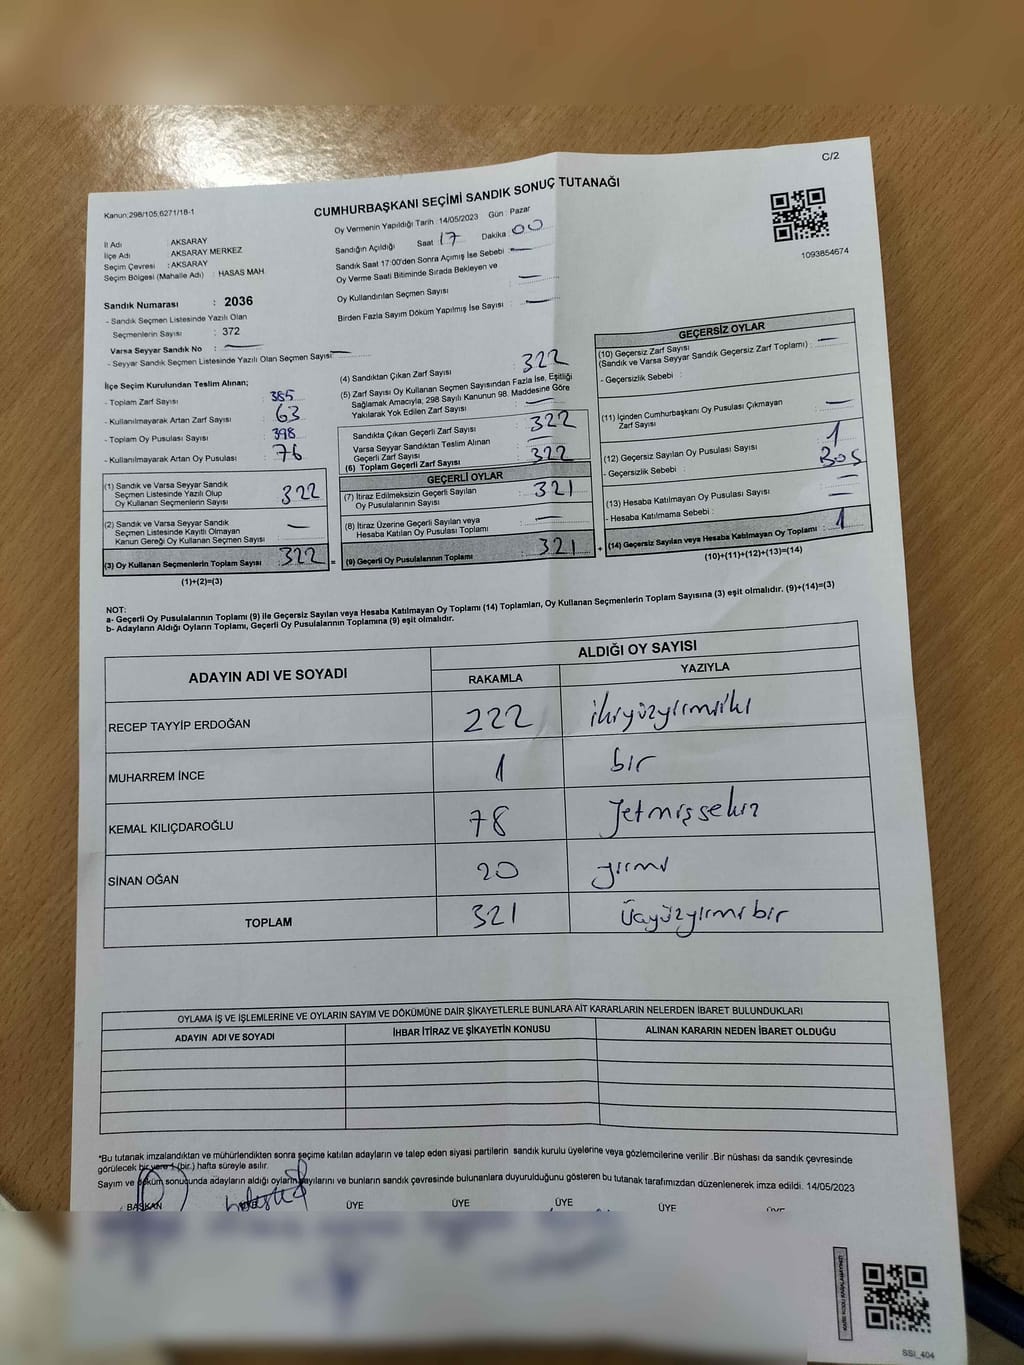 C/2
Kanun:298/105,6271/18-1
CUMHURBAŞKANI SEÇİMİ SANDIK SONUÇ TUTANAĞI
1093854674
İl Adı : AKSARAY
İlçe Adı : AKSARAY MERKEZ
Seçim Çevresi : AKSARAY
Seçim Bölgesi (Mahalle Adı) : HASAS MAH
Oy Vermenin Yapıldığı Tarih : 14/05/2023 Gün : Pazar
Sandığın Açıldığı Saat 17 Dakika 00
Sandık Saat 17:00'den Sonra Açımış İse Sebebi : —
Oy Verme Saati Bitiminde Sırada Bekleyen ve
Oy Kullandırılan Seçmen Sayısı : —
Birden Fazla Sayım Döküm Yapılmış İse Sayısı : —
Sandık Numarası : 2036
- Sandık Seçmen Listesinde Yazılı Olan
Seçmenlerin Sayısı : 372
Varsa Seyyar Sandık No : —
- Seyyar Sandık Seçmen Listesinde Yazılı Olan Seçmen Sayısı: —
İlçe Seçim Kurulundan Teslim Alınan;
- Toplam Zarf Sayısı : 385
- Kullanılmayarak Artan Zarf Sayısı : 63
- Toplam Oy Pusulası Sayısı : 398
- Kullanılmayarak Artan Oy Pusulası : 76
(1) Sandık ve Varsa Seyyar Sandık
Seçmen Listesinde Yazılı Olup
Oy Kullanan Seçmenlerin Sayısı : 322
(2) Sandık ve Varsa Seyyar Sandık
Seçmen Listesinde Kayıtlı Olmayan
Kanun Gereği Oy Kullanan Seçmen Sayısı : —
(3) Oy Kullanan Seçmenlerin Toplam Sayısı : 322 =
(1)+(2)=(3)
(4) Sandıktan Çıkan Zarf Sayısı : 322
(5) Zarf Sayısı Oy Kullanan Seçmen Sayısından Fazla İse, Eşitliği
Sağlamak Amacıyla, 298 Sayılı Kanunun 98. Maddesine Göre
Yakılarak Yok Edilen Zarf Sayısı : —
Sandıkta Çıkan Geçerli Zarf Sayısı : 322
Varsa Seyyar Sandıktan Teslim Alınan
Geçerli Zarf Sayısı : —
(6) Toplam Geçerli Zarf Sayısı : 322
GEÇERLİ OYLAR
(7) İtiraz Edilmeksizin Geçerli Sayılan
Oy Pusulalarının Sayısı : 321
(8) İtiraz Üzerine Geçerli Sayılan veya
Hesaba Katılan Oy Pusulası Toplamı : —
(9) Geçerli Oy Pusulalarının Toplamı : 321 +
GEÇERSİZ OYLAR
(10) Geçersiz Zarf Sayısı
(Sandık ve Varsa Seyyar Sandık Geçersiz Zarf Toplamı) : —
- Geçersizlik Sebebi :
(11) İçinden Cumhurbaşkanı Oy Pusulası Çıkmayan
Zarf Sayısı : —
(12) Geçersiz Sayılan Oy Pusulası Sayısı : 1
- Geçersizlik Sebebi : Boş
(13) Hesaba Katılmayan Oy Pusulası Sayısı : —
- Hesaba Katılmama Sebebi : —
(14) Geçersiz Sayılan veya Hesaba Katılmayan Oy Toplamı : 1
(10)+(11)+(12)+(13)=(14)
NOT:
a- Geçerli Oy Pusulalarının Toplamı (9) ile Geçersiz Sayılan veya Hesaba Katılmayan Oy Toplamı (14) Toplamları, Oy Kullanan Seçmenlerin Toplam Sayısına (3) eşit olmalıdır. (9)+(14)=(3)
b- Adayların Aldığı Oyların Toplamı, Geçerli Oy Pusulalarının Toplamına (9) eşit olmalıdır.
ADAYIN ADI VE SOYADI
ALDIĞI OY SAYISI
RAKAMLA YAZIYLA
RECEP TAYYİP ERDOĞAN 222 ikiyüzyirmiiki
MUHARREM İNCE 1 bir
KEMAL KILIÇDAROĞLU 78 Yetmişsekiz
SİNAN OĞAN 20 yirmi
TOPLAM 321 Üçyüzyirmibir
OYLAMA İŞ VE İŞLEMLERİNE VE OYLARIN SAYIM VE DÖKÜMÜNE DAİR ŞİKAYETLERLE BUNLARA AİT KARARLARIN NELERDEN İBARET BULUNDUKLARI
ADAYIN ADI VE SOYADI İHBAR İTİRAZ VE ŞİKAYETİN KONUSU ALINAN KARARIN NEDEN İBARET OLDUĞU
*Bu tutanak imzalandıktan ve mühürlendikten sonra seçime katılan adayların ve talep eden siyasi partilerin sandık kurulu üyelerine veya gözlemcilerine verilir .Bir nüshası da sandık çevresinde
görülecek bir yere 1 (bir.) hafta süreyle asılır.
Sayım ve döküm sonucunda adayların aldığı oyların sayılarını ve bunların sandık çevresinde bulunanlara duyurulduğunu gösteren bu tutanak tarafımızdan düzenlenerek imza edildi. 14/05/2023
BAŞKAN ÜYE ÜYE ÜYE ÜYE
SSI_404